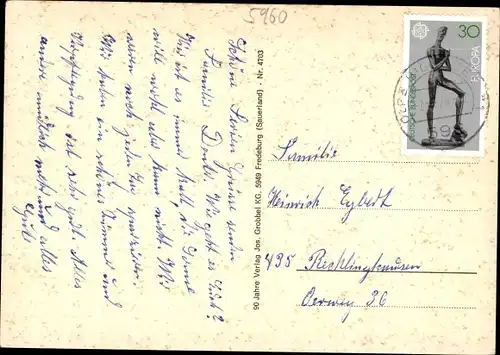 5960
Schöne Ferien Grüße senden
Familie
Wie geht es Euch?
Hier ist es immer kalt, die Sonne
will wohl aber kann nicht. Wir
waren noch jeden Tag spazieren.
Wir haben ein schönes Zimmer und
Verpflegung ist sehr gut. Alles
andere mündlich mehr und alles
Gute
90 Jahre Verlag Jos. Grobbel KG, 5949 Fredeburg (Sauerland) - Nr. 4703
30
EUROPA
CEPT
DEUTSCHE BUNDESPOST
OLPE
59
Familie
Heinrich
435 Recklinghausen
Oerweg 36